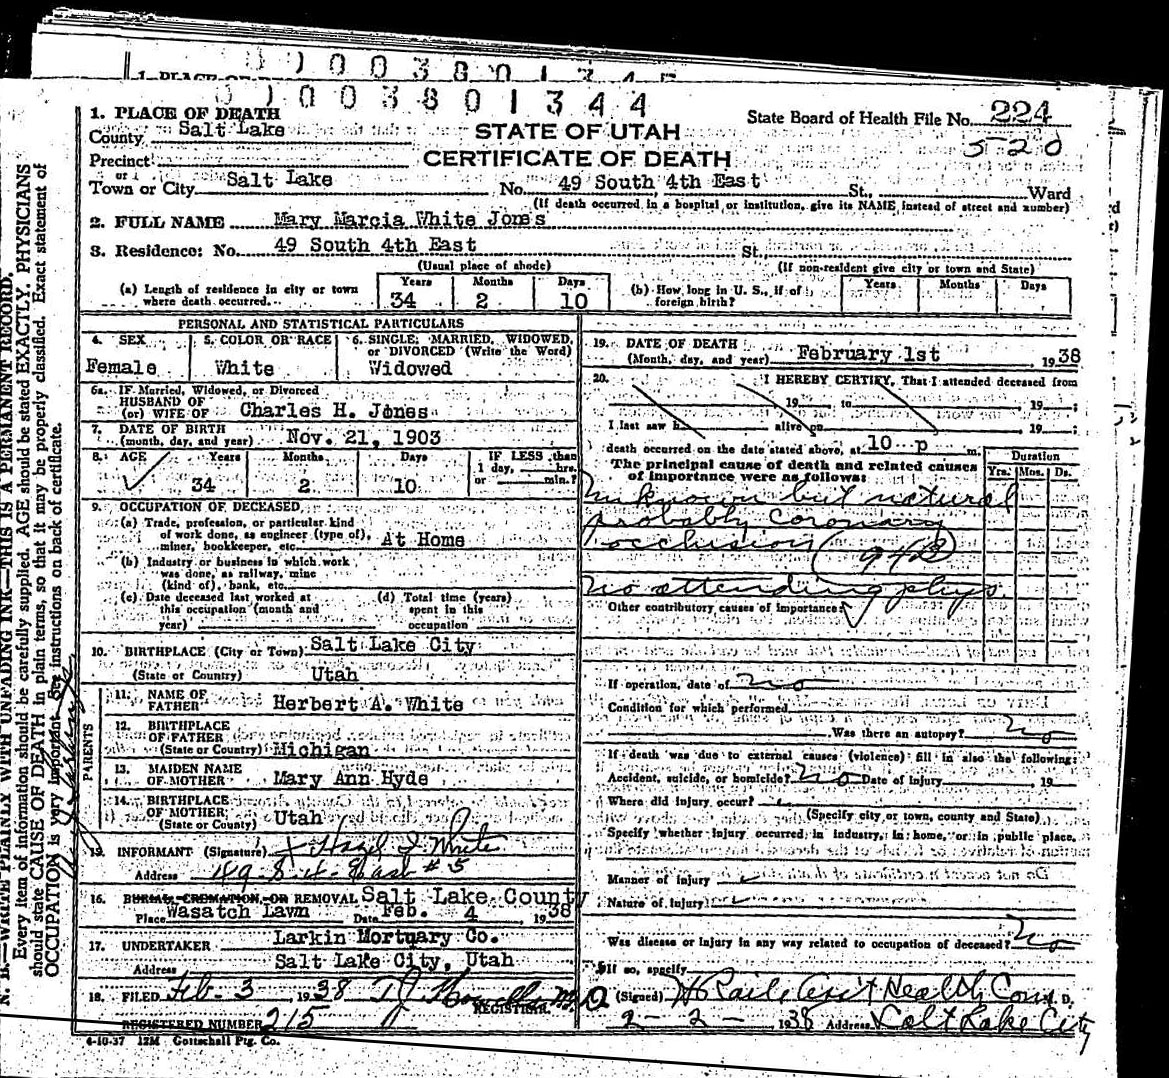 0003801344
1. PLACE OF DEATH
County Salt Lake
STATE OF UTAH
State Board of Health File No. 224
520
Precinct
CERTIFICATE OF DEATH
or
Town or City Salt Lake No. 49 South 4th East St., Ward
(If death occurred in a hospital or institution, give its NAME instead of street and number)
2. FULL NAME Mary Marcia White Jones
3. Residence: No. 49 South 4th East St.
(Usual place of abode) (If non-resident give city or town and State)
(a) Length of residence in city or town where death occurred. Years 34 Months 2 Days 10
(b) How long in U. S., if of foreign birth? Years Months Days
PERSONAL AND STATISTICAL PARTICULARS
4. SEX Female
5. COLOR OR RACE White
6. SINGLE, MARRIED, WIDOWED, or DIVORCED (Write the Word) Widowed
6a. IF Married, Widowed, or Divorced
HUSBAND OF
(or) WIFE OF Charles H. Jones
7. DATE OF BIRTH
(month, day, and year) Nov. 21, 1903
8. AGE Years 34 Months 2 Days 10
IF LESS than 1 day, hrs. or min.?
9. OCCUPATION OF DECEASED
(a) Trade, profession, or particular kind of work done, as engineer (type of), miner, bookkeeper, etc. At Home
(b) Industry or business in which work was done, as railway, mine (kind of), bank, etc.
(c) Date deceased last worked at this occupation (month and year)
(d) Total time (years) spent in this occupation
10. BIRTHPLACE (City or Town) Salt Lake City
(State or Country) Utah
PARENTS
11. NAME OF FATHER Herbert A. White
12. BIRTHPLACE OF FATHER
(State or Country) Michigan
13. MAIDEN NAME OF MOTHER Mary Ann Hyde
14. BIRTHPLACE OF MOTHER
(State or Country) Utah
15. INFORMANT (Signature) X Hazel J. White
Address 49 S. 4 East #5
16. BURIAL, CREMATION, OR REMOVAL Salt Lake County
Place Wasatch Lawn Date Feb. 4 1938
17. UNDERTAKER Larkin Mortuary Co.
Address Salt Lake City, Utah
18. FILED Feb. 3 1938
REGISTRAR.
REGISTERED NUMBER 215
4-10-37 12M Gottschall Ptg. Co.
19. DATE OF DEATH
(Month, day, and year) February 1st 1938
20. I HEREBY CERTIFY, That I attended deceased from
19 to 19 ;
I last saw h alive on 19 ;
death occurred on the date stated above, at 10 p m.
The principal cause of death and related causes of importance were as follows:
Duration
Yrs. Mos. Ds.
Unknown but natural
probably coronary
occlusion (94B)
No attending phys.
Other contributory causes of importance:
If operation, date of no
Condition for which performed
Was there an autopsy? no
If death was due to external causes (violence) fill in also the following:
Accident, suicide, or homicide? no Date of injury 19
Where did injury occur?
(Specify city or town, county and State)
Specify whether injury occurred in industry, in home, or in public place.
Manner of injury
Nature of injury
Was disease or injury in any way related to occupation of deceased? no
If so, specify
(Signed) City Health Com M. D.
2-2- 1938 Address Salt Lake City
N. B.—WRITE PLAINLY WITH UNFADING INK—THIS IS A PERMANENT RECORD.
Every item of information should be carefully supplied. AGE should be stated EXACTLY. PHYSICIANS
should state CAUSE OF DEATH in plain terms, so that it may be properly classified. Exact statement of
OCCUPATION is very important. See instructions on back of certificate.